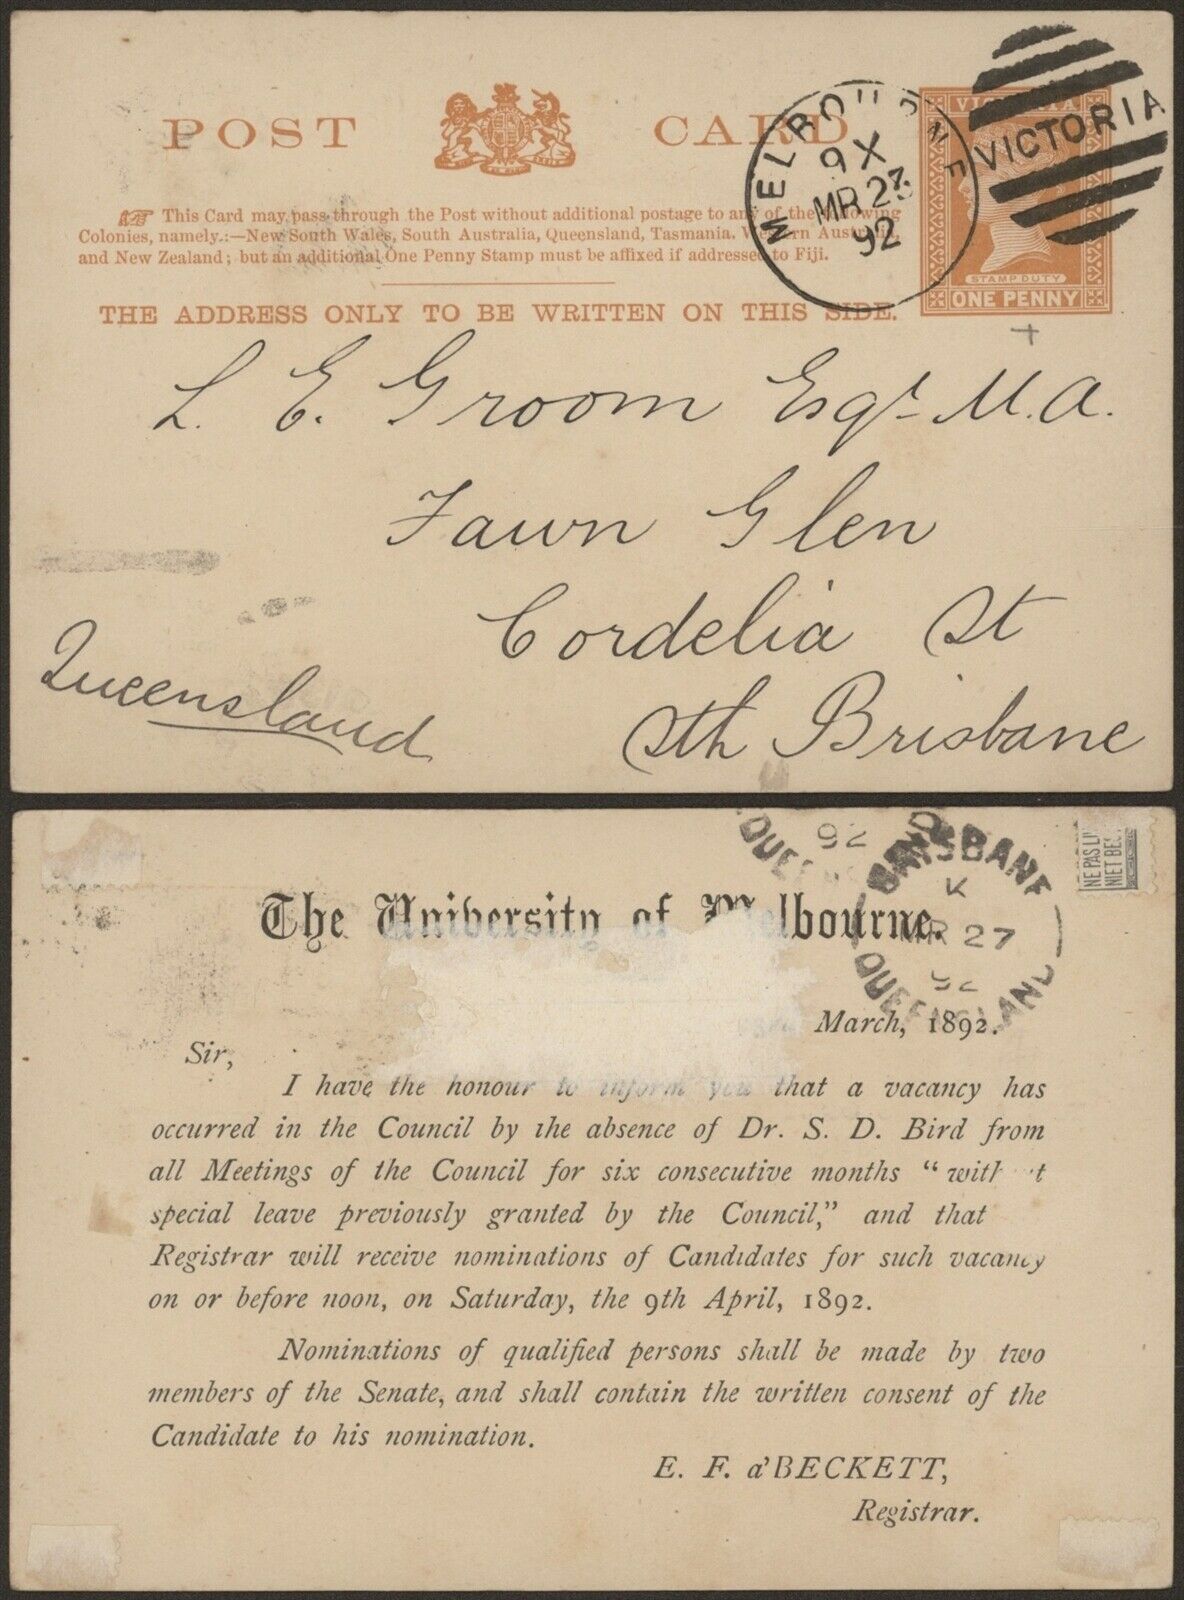 POST CARD
This Card may pass through the Post without additional postage to any of the following
Colonies, namely:—New South Wales, South Australia, Queensland, Tasmania, Western Australia,
and New Zealand; but an additional One Penny Stamp must be affixed if addressed to Fiji.
THE ADDRESS ONLY TO BE WRITTEN ON THIS SIDE.
MELBOURNE
9X
MR 23
92
VICTORIA
VICTORIA
STAMP DUTY
ONE PENNY
L. E. Groom Esqr M.A.
Fawn Glen
Cordelia St
Sth Brisbane
Queensland
92
QUEE
BRISBANE
K
MR 27
92
QUEENSLAND
NE PAS LI
NIET BES
The University of Melbourne.
March, 1892.
Sir,
I have the honour to inform you that a vacancy has
occurred in the Council by the absence of Dr. S. D. Bird from
all Meetings of the Council for six consecutive months “without
special leave previously granted by the Council,” and that
Registrar will receive nominations of Candidates for such vacancy
on or before noon, on Saturday, the 9th April, 1892.
Nominations of qualified persons shall be made by two
members of the Senate, and shall contain the written consent of the
Candidate to his nomination.
E. F. a'BECKETT,
Registrar.